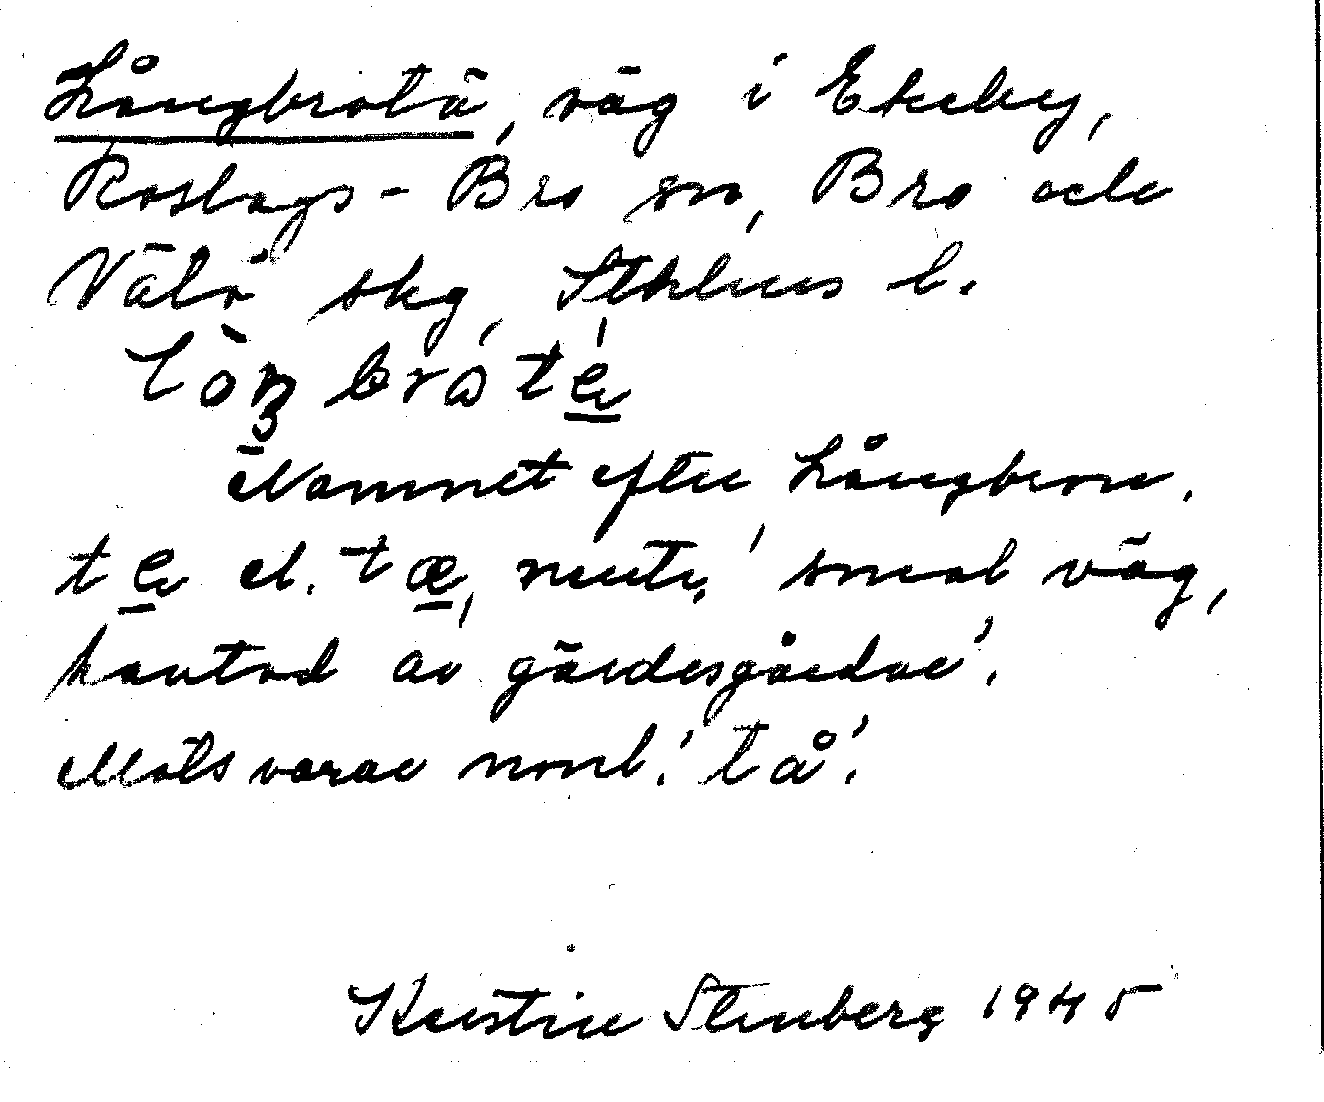 Långbrotä, väg i Ekeby,
Roslags-Bro sn, Bro och
Vätö skg, Sthlms l.
Namnet efter Långbron.
te el. tæ, neutr. 'smal väg,
kantad av gärdesgårdar'.
Motsvarar nord. 'tå'.
Kerstin Stenberg 1945